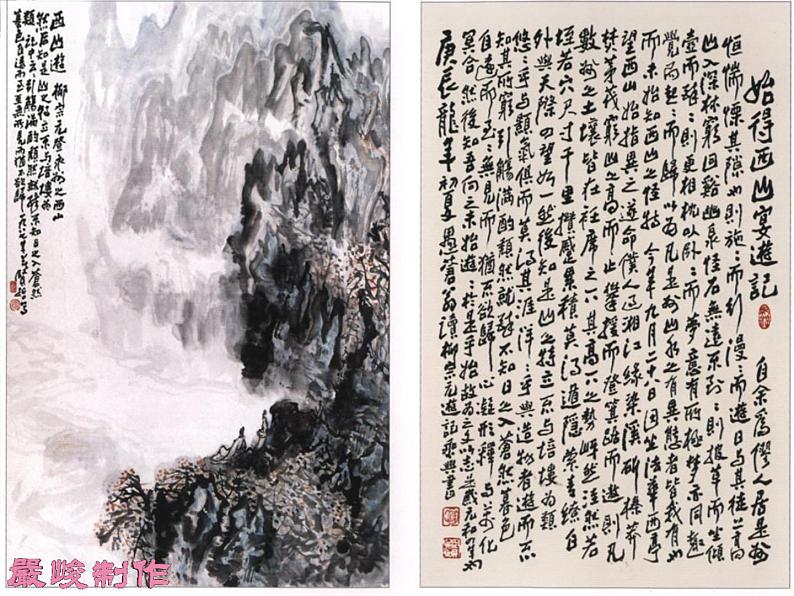 西山遊 柳宗元登永州之西山
然后知是山之特立不与培塿為
類 記中云 引觴滿酌頹然就醉不知日之入蒼然
暮色自遠而至至無所見而猶不欲歸 一九八七年
始得西山宴遊記 自余爲僇人居是州
恒惴慄其隙也則施施而行漫漫而遊日與其徒上高
山入深林窮回谿幽泉怪石無遠不到到則披草而坐傾
壺而醉醉則更相枕以卧卧而夢意有所極夢亦同趣
覺而起起而歸以為凡是州山水之有異態者皆我有也
而未始知西山之怪特 今年九月二十八日因坐法華西亭
望西山始指異之遂命僕人過湘江緣染溪斫榛莽
焚茅茷窮山之高而止攀援而登箕踞而遨則凡
數州之土壤皆在衽席之下其高下之勢岈然洼然若
垤若穴尺寸千里攢蹙累積莫得遁隱縈青繚白
外與天際四望如一然後知是山之特立不與培塿為類
悠悠乎與顥氣俱而莫得其涯洋洋乎與造物者遊而不
知其所窮引觴滿酌頹然就醉不知日之入蒼然暮色
自遠而至至無見而猶不欲歸心凝形釋與萬化
冥合然後知吾向之未始遊遊於是乎始故為之文以志是歲元和四年也
庚辰龍年初夏愚菴翁讀柳宗元遊記乘興書
嚴峻制作